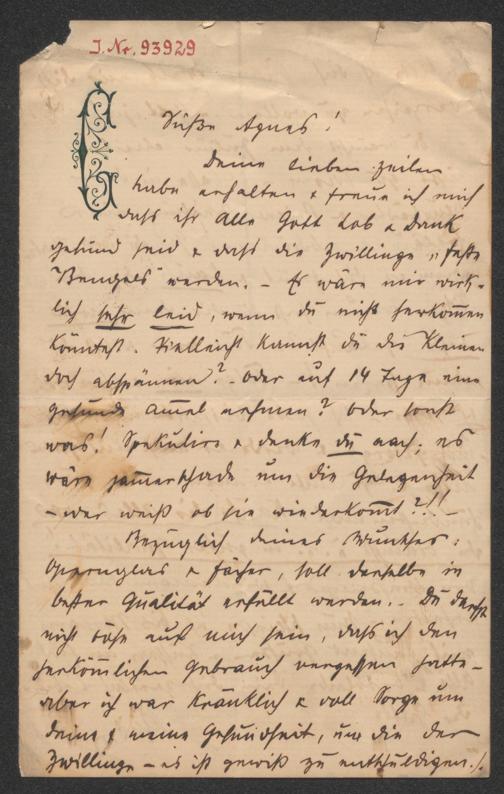 J. Nr. 93929
Süße Agnes!
Deine lieben Zeilen
habe erhalten & freue ich mich
daß ihr Alle Gott Lob & Dank
gesund seid & daß die Zwillinge „feste
Bengels" werden. – Es wäre mir wirk-
lich sehr leid, wenn du nicht herkom̅en
könntest. Vielleicht kannst du die Kleinen
doch abspännen? – Oder auf 14 Tage eine
gesunde Am̅el nehmen? Oder sonst
was! Spekulire & denke du nach; es
wäre jam̅erschade um die Gelegenheit
– wer weiß ob sie wiederkom̅t?!! –
Bezüglich deines Wunsches:
Opernglas & Fächer, soll derselbe in
bester Qualität erfüllt werden. – Du darfst
nicht böse auf mich sein, daß ich den
herköm̅lichen Gebrauch vergessen hatte –
aber ich war kränklich & voll Sorge um
deine & meine Gesundheit, um die der
Zwillinge – es ist gewiß zu entschuldigen. /.